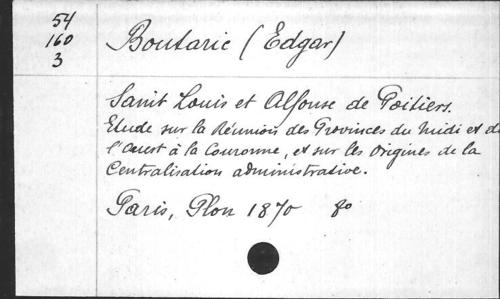 54
160
3
Boutaric (Edgar)
Saint Louis et Alfonse de Poitiers.
Etude sur la Réunion des Provinces du Midi et d
l'Ouest à la Couronne, et sur les Origines de la
Centralisation administrative.
Paris, Plon 1870 8o